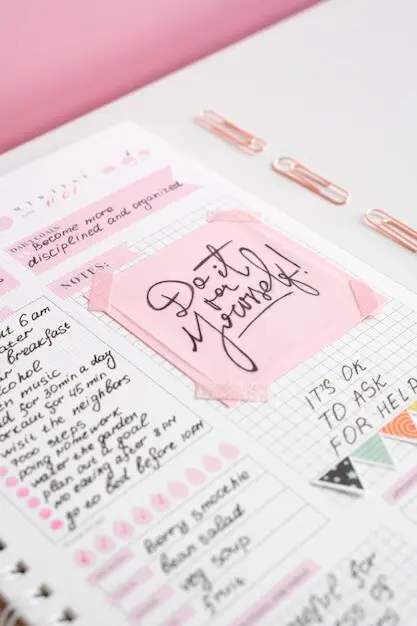 Become more
disciplined and organized
NOTES:
Do it
for
Yourself!
at 6 am
breakfast
music
for 30 min a day
for 45 min
visit the neighbors
7000 steps
doing homework
water the garden
plan out a goal
no eating after 8 PM
go to bed before 10 PM
IT'S OK
TO ASK
FOR HELP
Berry smoothie
bean salad
veg soup